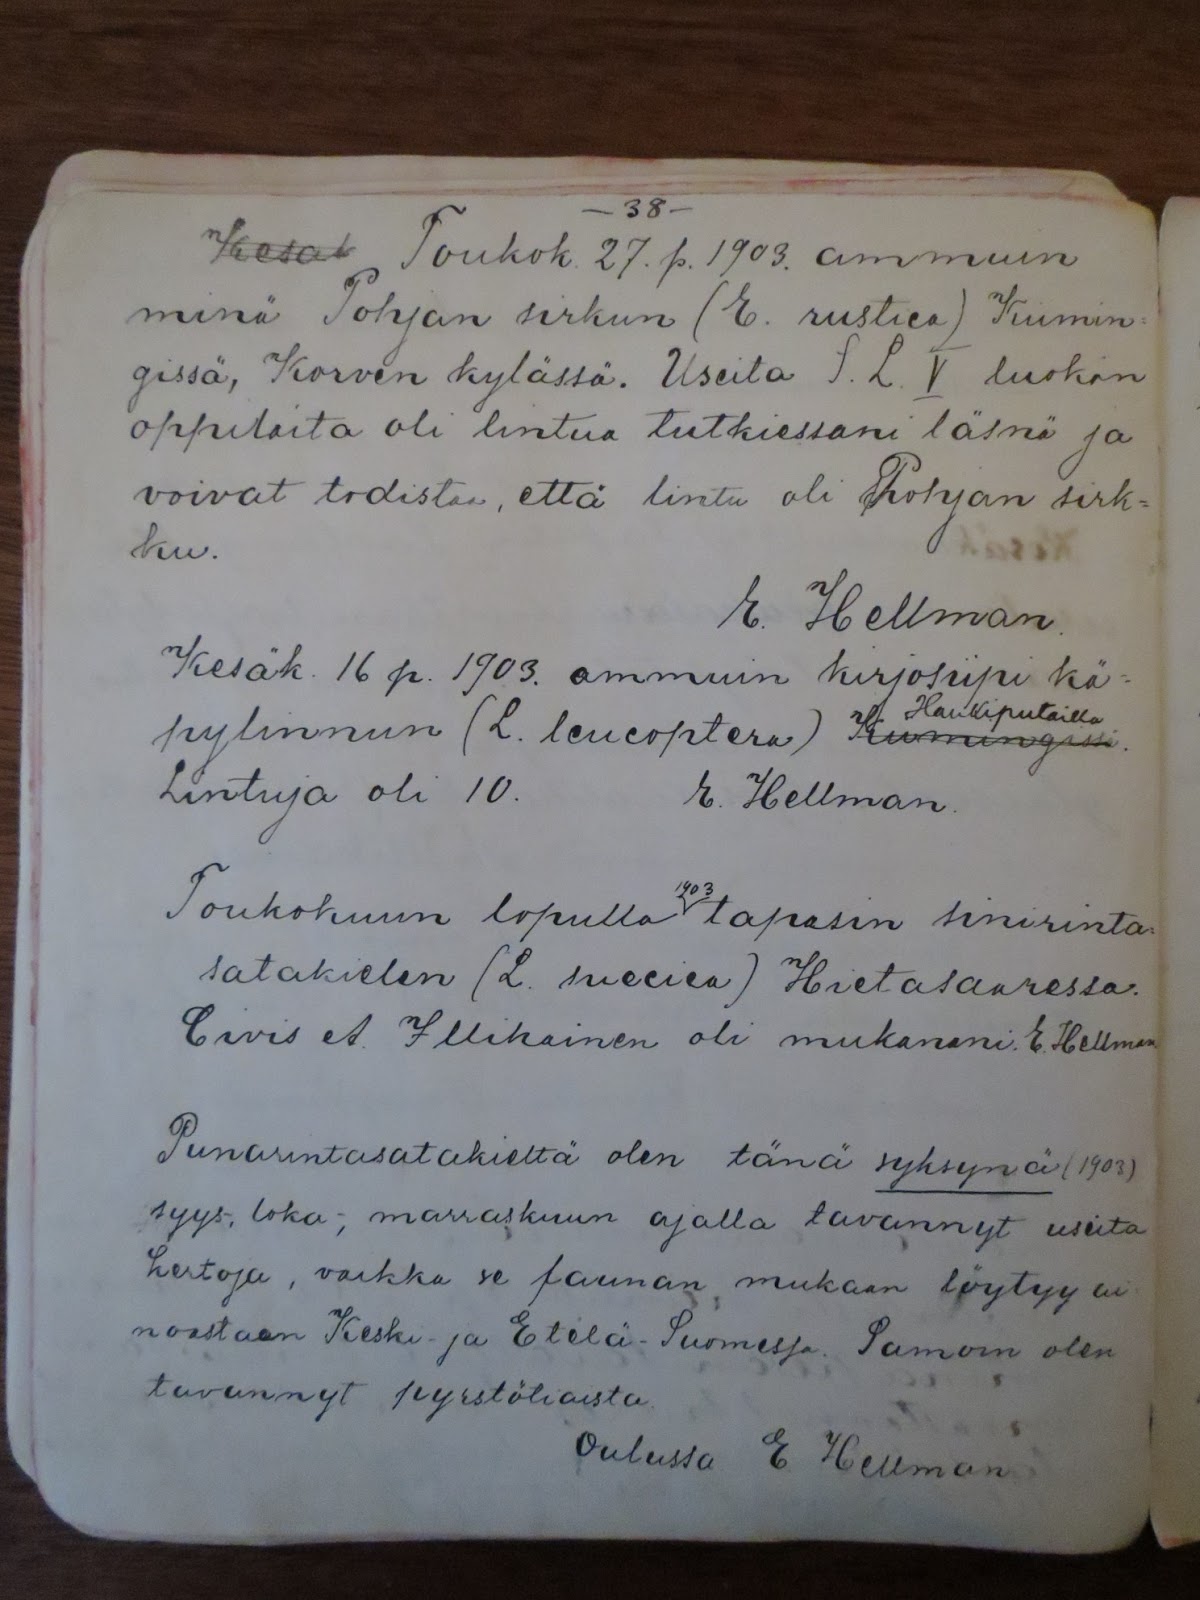 — 38 —
Kesäk Toukok. 27. p. 1903. ammuin
minä Pohjan sirkun (E. rustica) Kiimin=
gissä, Korven kylässä. Useita S. L. V luokan
oppilaita oli lintua tutkiessani läsnä ja
voivat todistaa, että lintu oli Pohjan sirk=
ku.
E. Hellman.
Kesäk. 16 p. 1903. ammuin kirjosiipi kä=
Haukiputailla
pylinnun (L. leucoptera) Kiimingissä.
Lintuja oli 10. E. Hellman.
1903
Toukokuun lopulla tapasin sinirinta=
satakielen (L. suecica) Hietasaaressa.
Civis et. Illikainen oli mukanani. E. Hellman
Punarintasatakieltä olen tänä syksynä (1903)
syys, loka-, marraskuun ajalla tavannyt useita
kertoja, vaikka se faunan mukaan löytyy ai
noastaan Keski- ja Etelä-Suomessa. Samoin olen
tavannyt pyrstötiaista.
Oulussa E Hellman